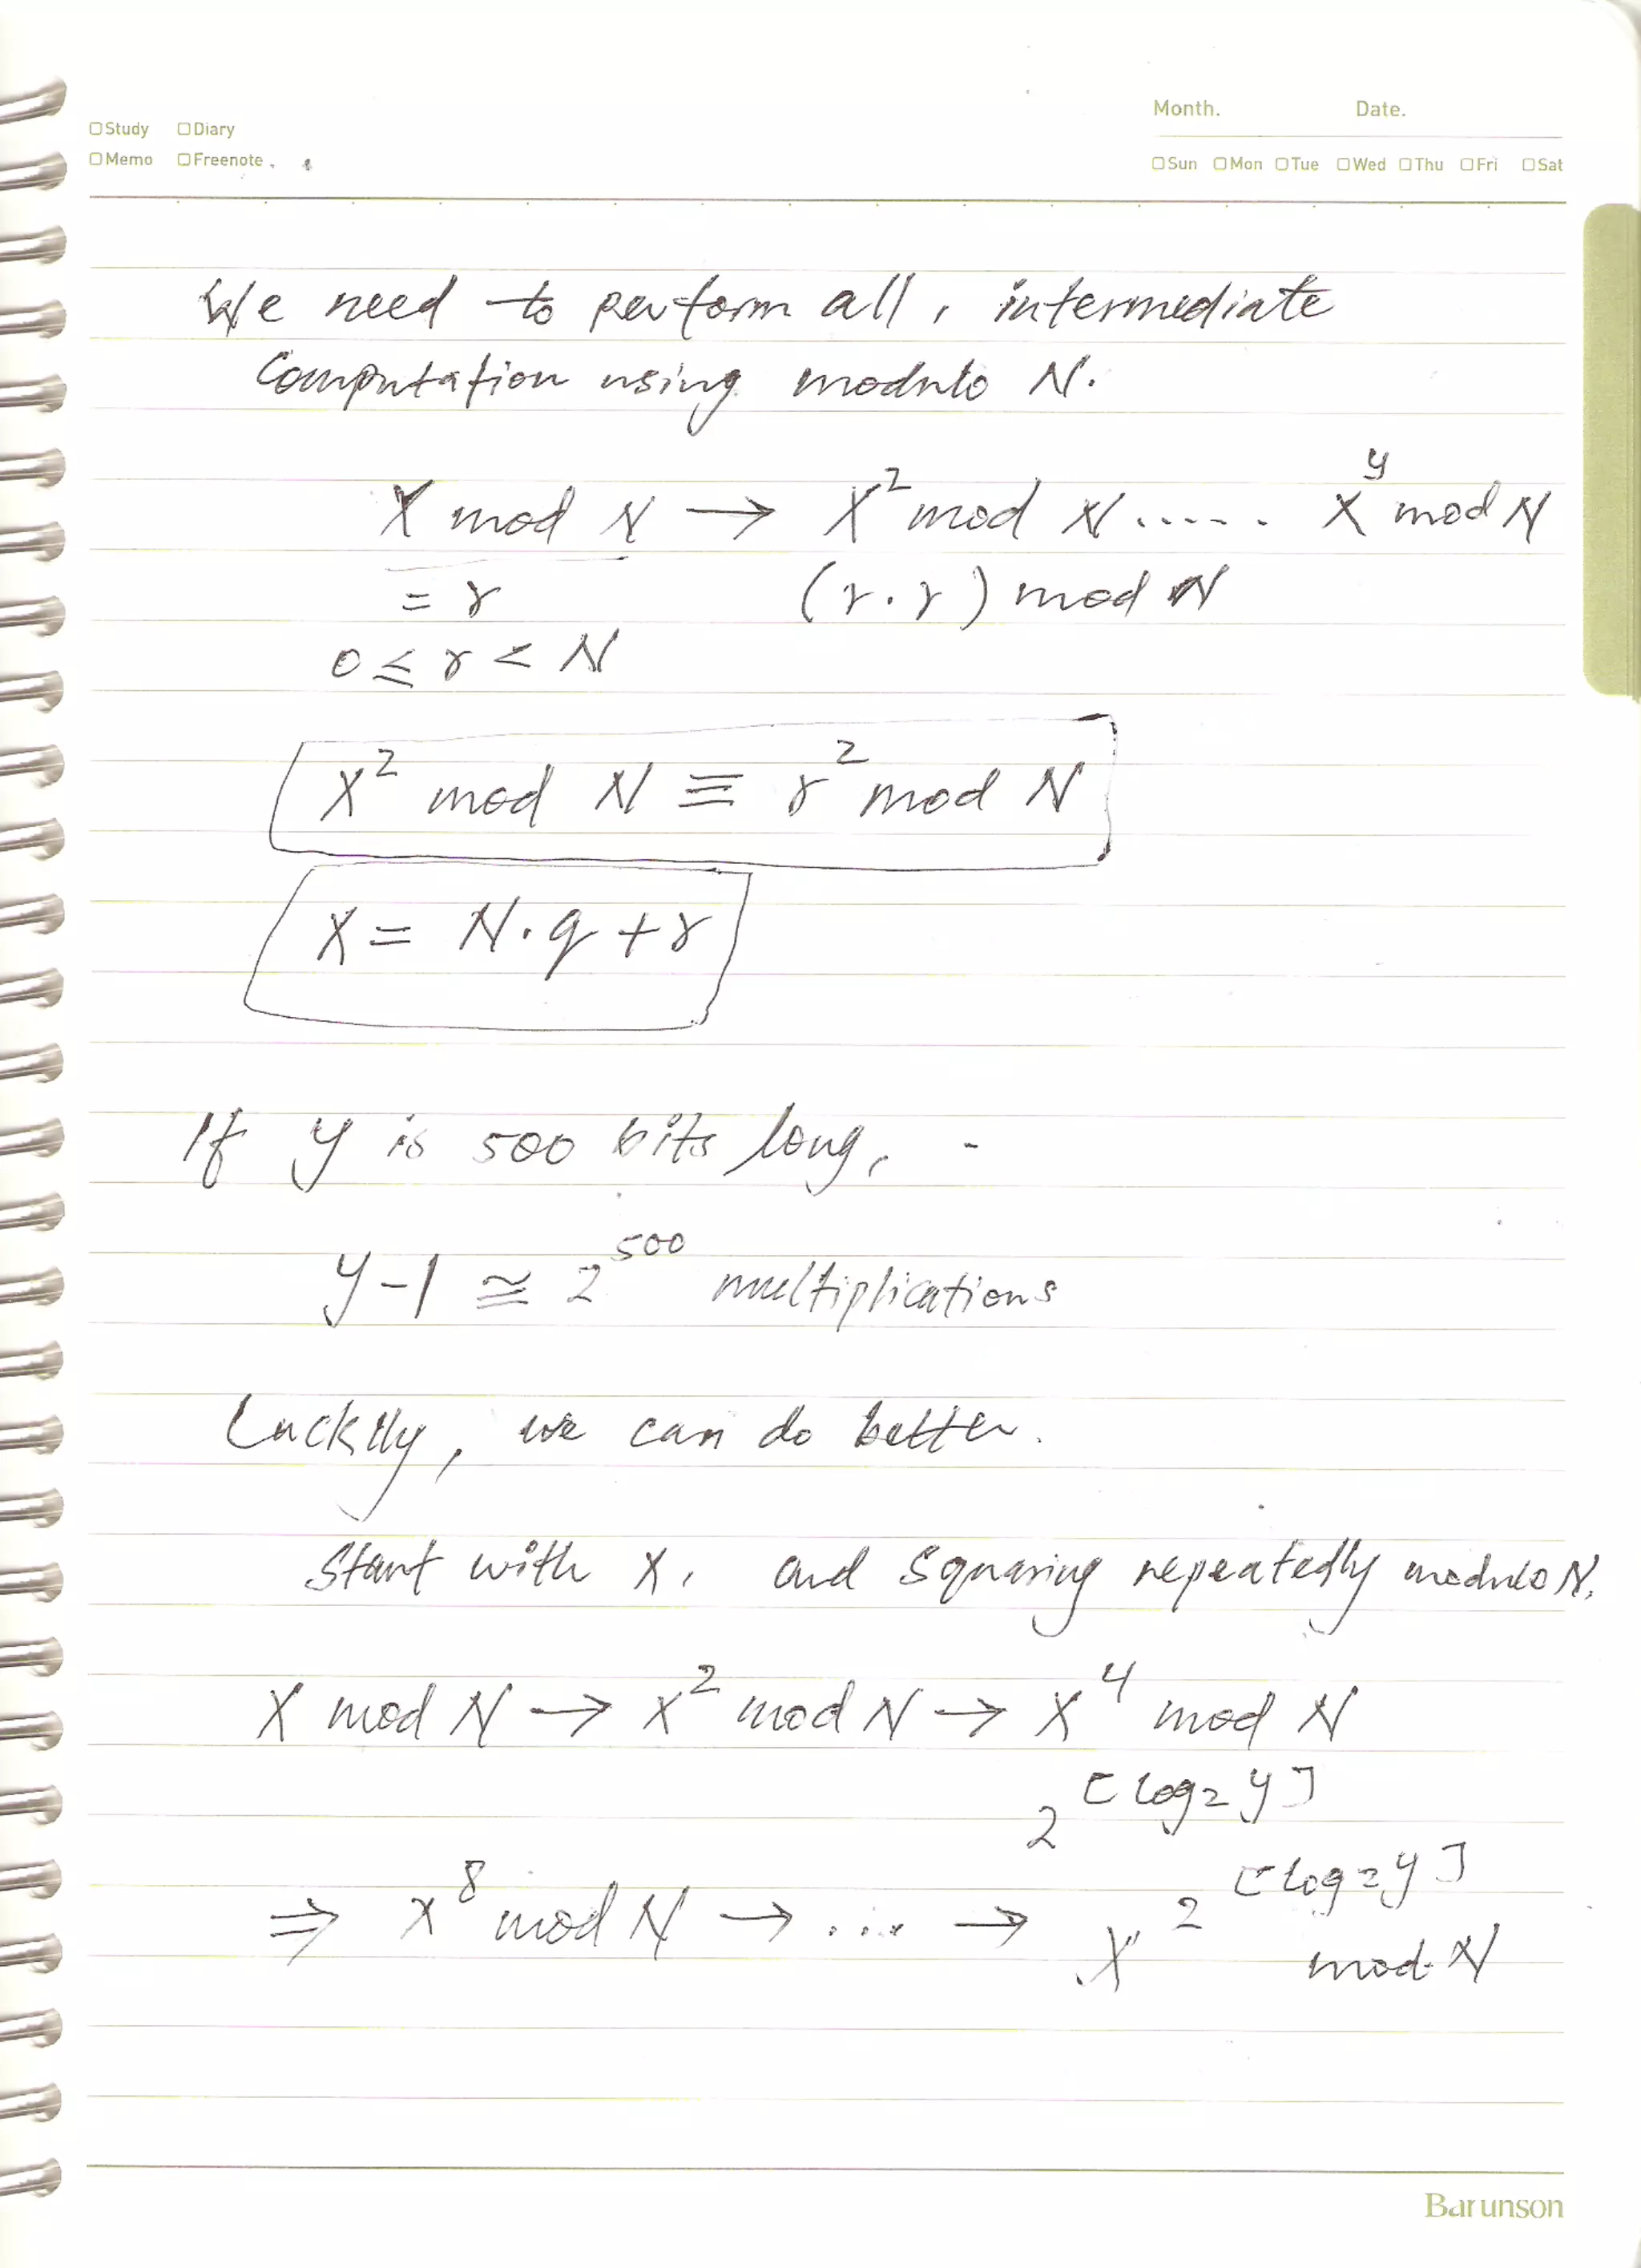 Month. Date.
□Study □Diary
□Memo □Freenote
□Sun □Mon □Tue □Wed □Thu □Fri □Sat
We need to perform all, intermediate
Computation using modulo N.
X mod N → X² mod N ..... X^y mod N
= r (r·r) mod N
0 ≤ r < N
X² mod N ≡ r² mod N
X = N·q + r
If y is 500 bits long,
y-1 ≅ 2^500 multiplications
Luckily, we can do better.
Start with X, and Squaring repeatedly modulo N.
X mod N → X² mod N → X⁴ mod N
2^[log₂ y]
⇒ X⁸ mod N → .... → X^2^[log₂ y] mod N
Barunson